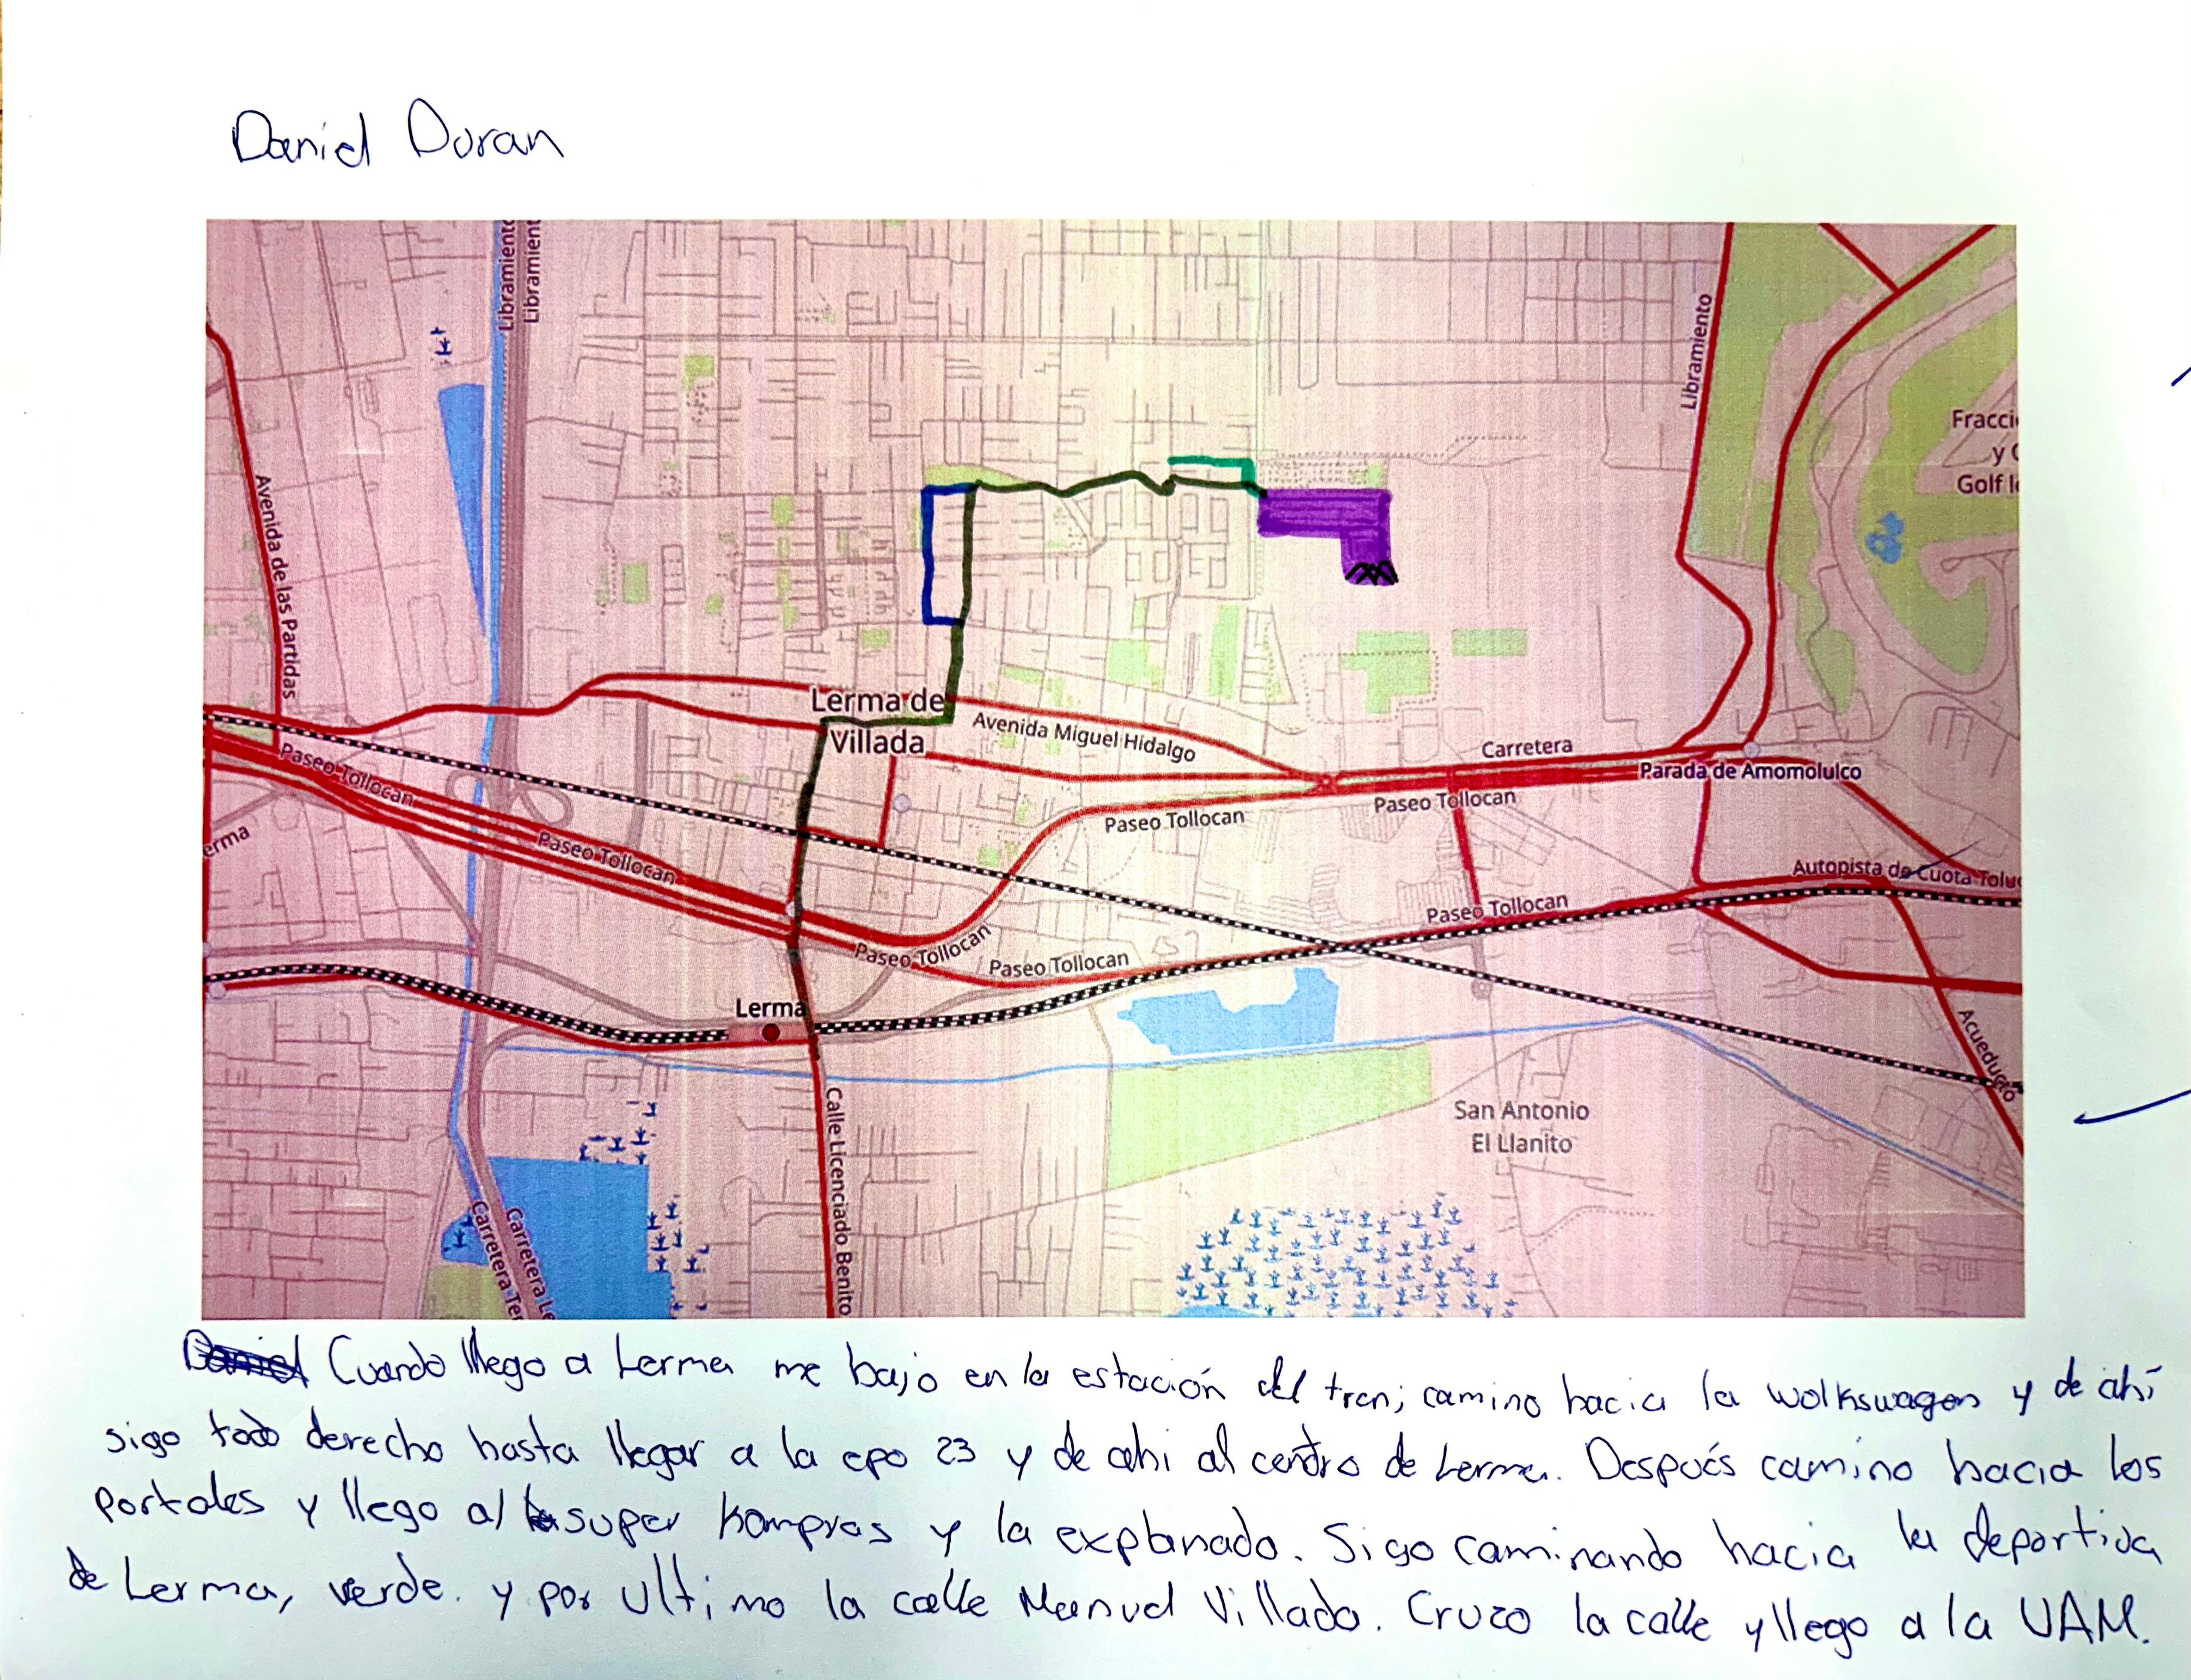 Daniel Duran
Libramiento
Libramient
Libramiento
Fracci
y C
Golf l
Avenida de las Partidas
Lerma de
Villada
Avenida Miguel Hidalgo
Carretera
Parada de Amomolulco
Paseo Tollocan
Paseo Tollocan
Paseo Tollocan
Paseo Tollocan
erma
Autopista de Cuota Toluc
Paseo Tollocan
Paseo Tollocan
Paseo Tollocan
Lerma
Acueducto
San Antonio
El Llanito
Calle Licenciado Benito
Carretera Le
Carretera Te
Cuando llego a Lerma me bajo en la estación del tren; camino hacia la wolkswagen y de ahí
sigo todo derecho hasta llegar a la epo 23 y de ahi al centro de Lerma. Después camino hacia los
portales y llego al super kompras y la explanada. Sigo caminando hacia la deportiva
de Lerma, verde. y por ultimo la calle Manuel Villada. Cruzo la calle y llego a la UAM.